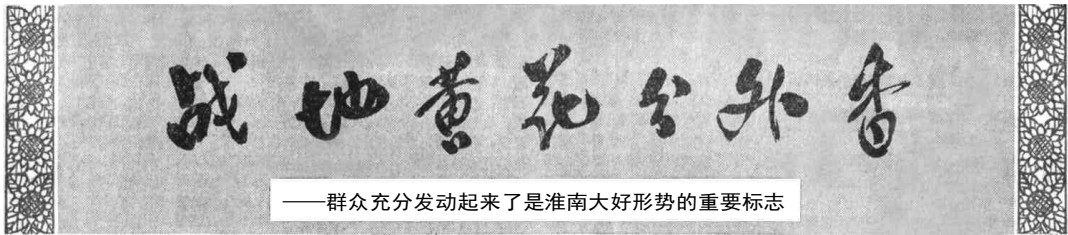 战地黄花分外香
——群众充分发动起来了是淮南大好形势的重要标志